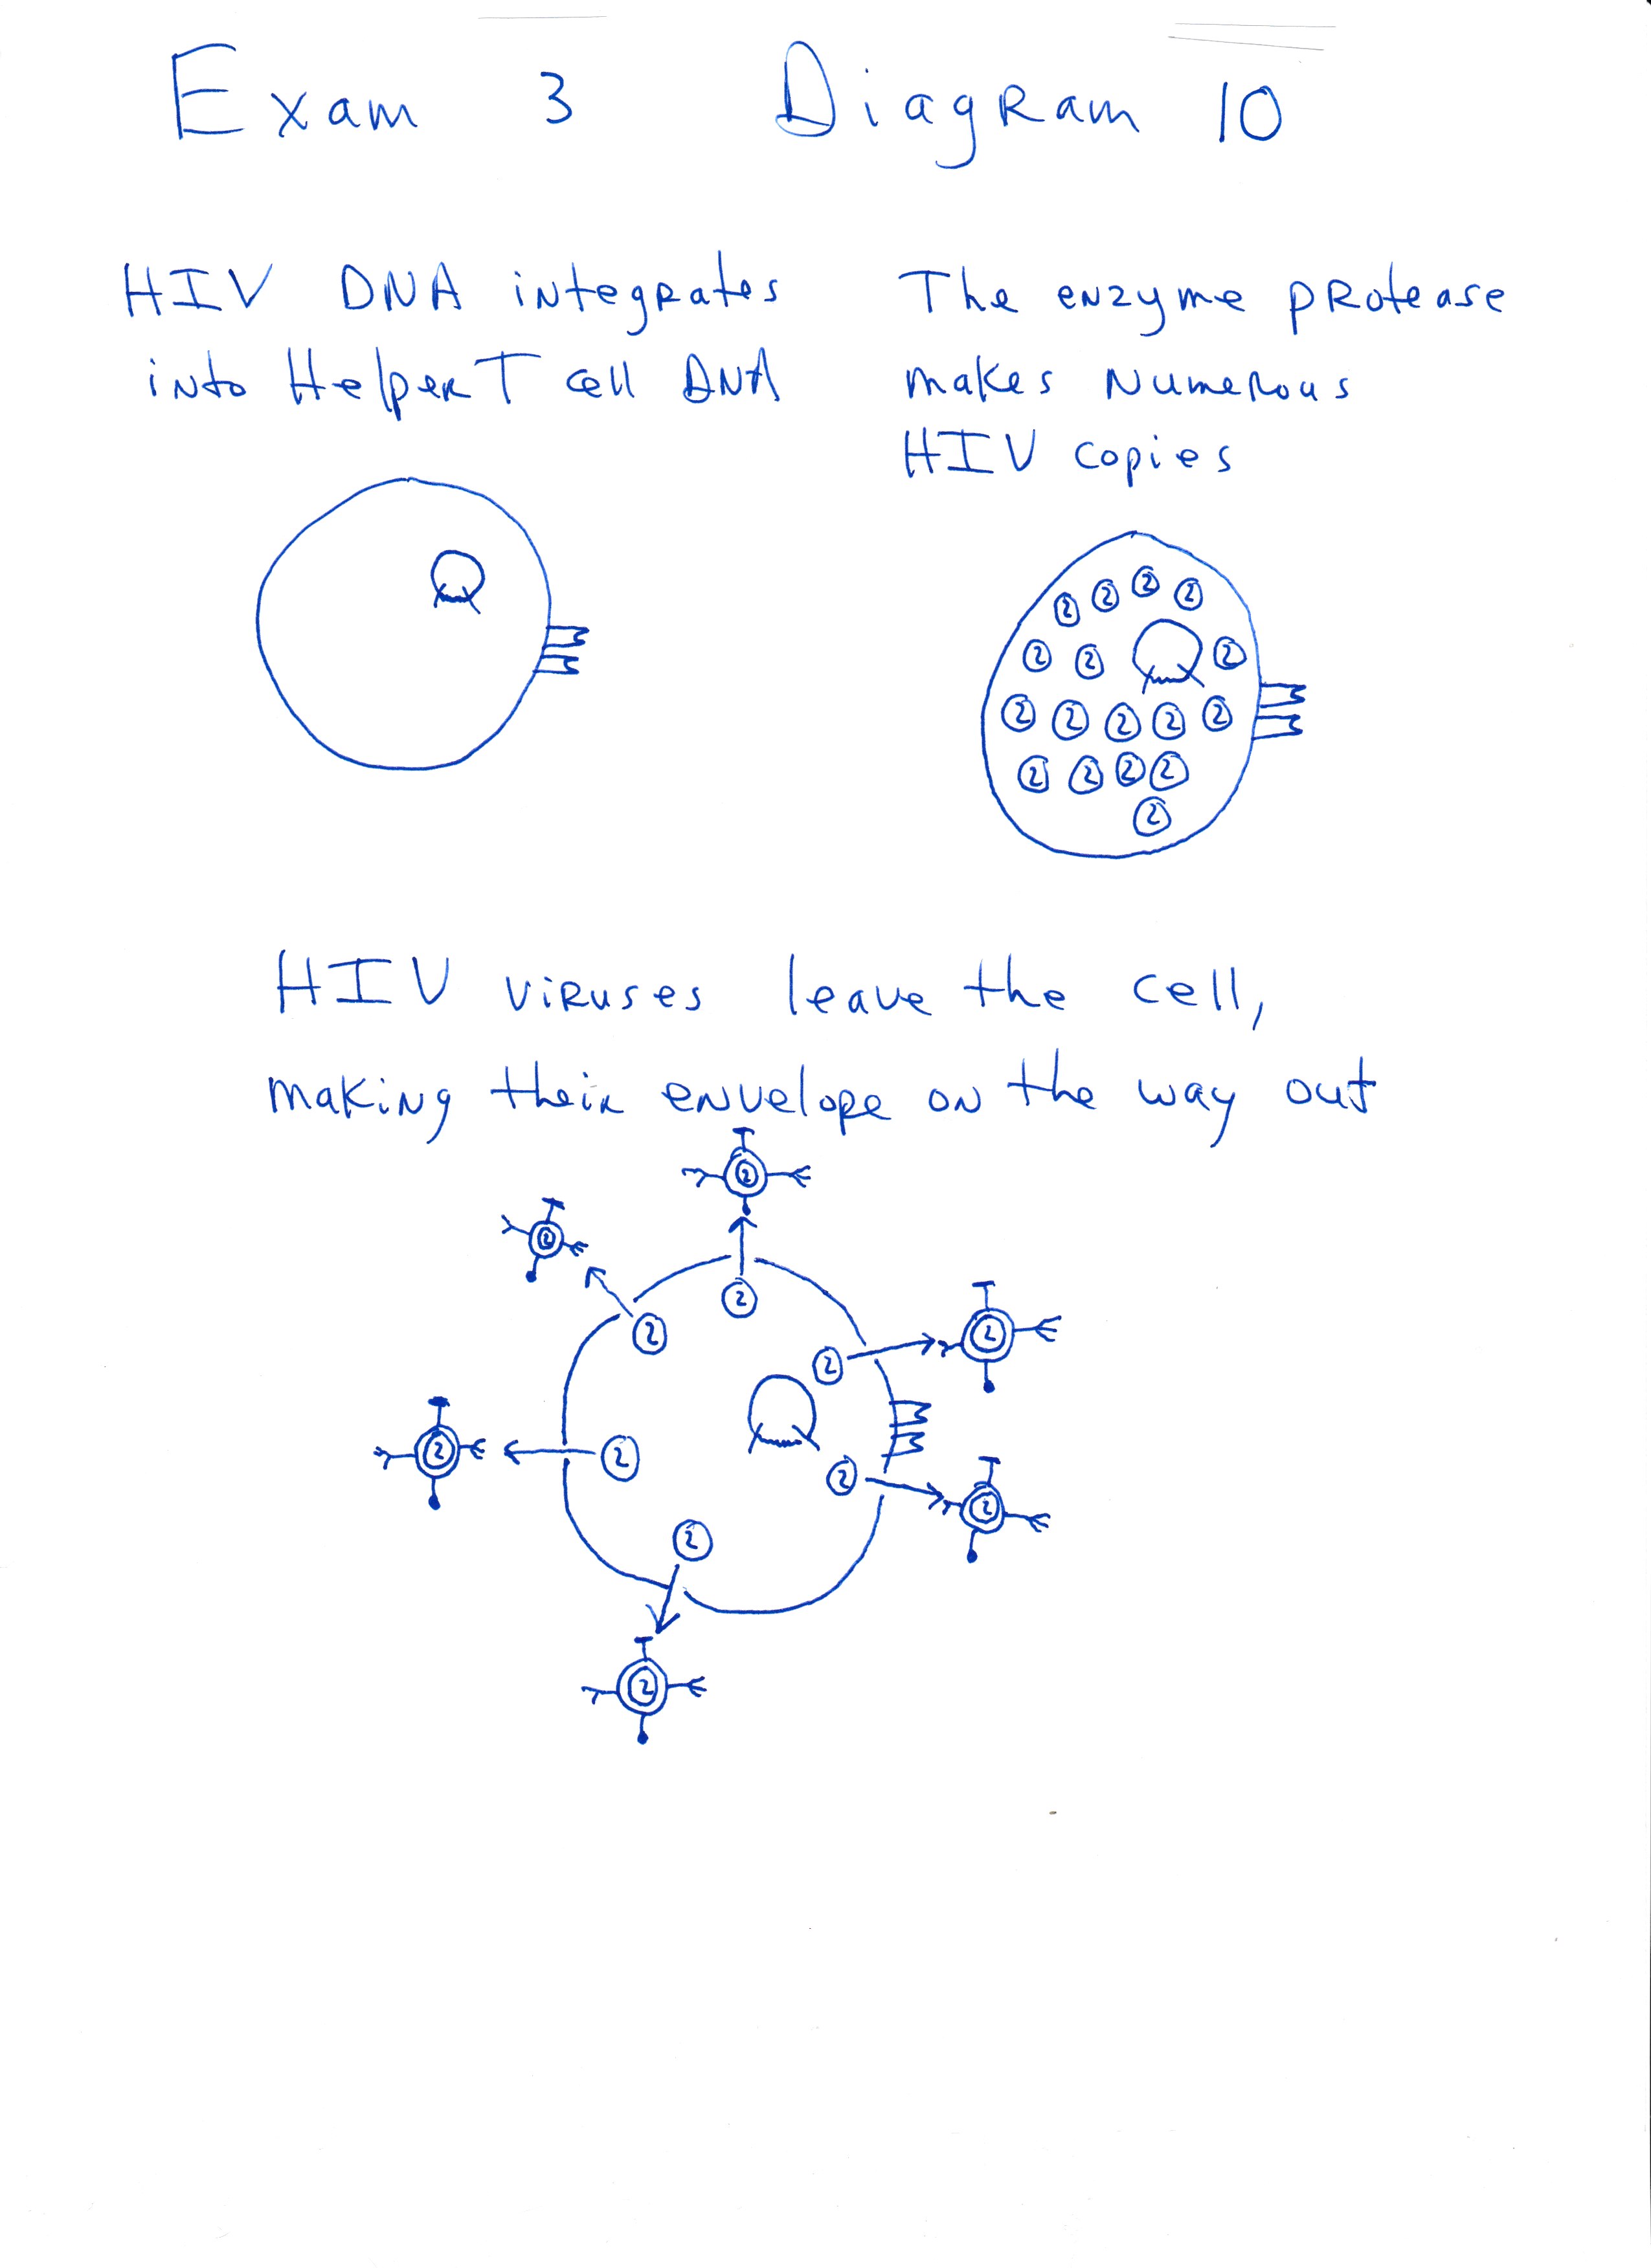 Exam 3 Diagram 10
HIV DNA integrates
into Helper T cell DNA
The enzyme protease
makes numerous
HIV copies
2 2 2 2
2 2 2
2 2 2 2 2
2 2 2 2
2
HIV viruses leave the cell,
making their envelope on the way out
2
2
2
2
2
2
2
2
2
2
2
2